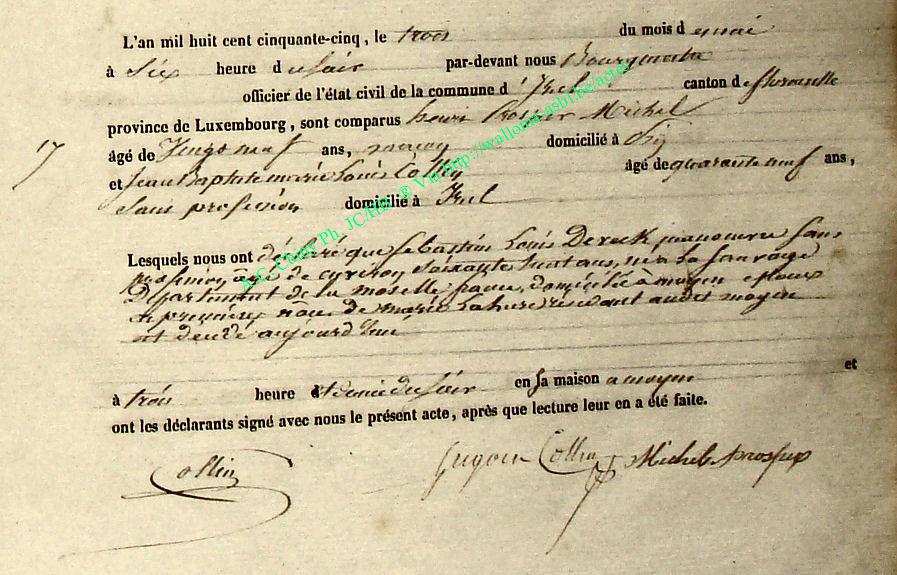 L'an mil huit cent cinquante-cinq, le trois du mois d e mai
à Six heure d u Soir par-devant nous Bourgmestre
officier de l'état civil de la commune d' Izel canton de florenville
province de Luxembourg, sont comparus henri Prosper Michel
17 âgé de Vingt neuf ans, maçon domicilié à
et Jean Baptiste marie Louis Collin âgé de quarante neuf ans,
Sans profession domicilié à Izel
Lesquels nous ont déclaré que Sebastien Louis manoeuvre Sans
profession âgé de environ Soixante huit ans, né a la Sauvage
Département de la moselle domicilié à moyen epoux
de marie audit moyen
est décédé aujourd'hui
à trois heure et demie du Soir en sa maison a moyen et
ont les déclarants signé avec nous le présent acte, après que lecture leur en a été faite.
Collin Collin Michel Prosper
A.C. Chiny Ph. JC/HB. ® Via http://wallonia.asbl.be/actes